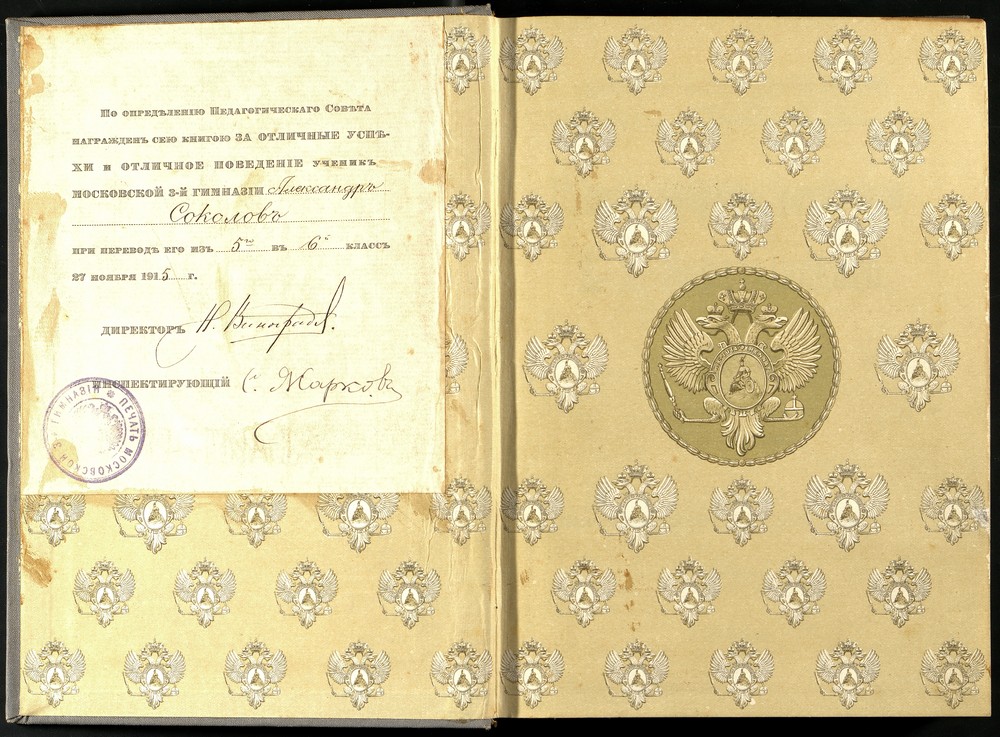 По опредѣленію Педагогическаго Совѣта
награжденъ сею книгою ЗА ОТЛИЧНЫЕ УСПѢ-
ХИ и ОТЛИЧНОЕ ПОВЕДЕНІЕ ученикъ
МОСКОВСКОЙ 3-Й ГИМНАЗІИ Александръ
Соколовъ
при переводѣ его изъ 5го въ 6й классъ
27 ноября 1915 г.
ДИРЕКТОРЪ Н. Виноградов.
ИНСПЕКТИРУЮЩІЙ С. Марковъ
ПЕЧАТЬ МОСКОВСКОЙ 3й ГИМНАЗІИ